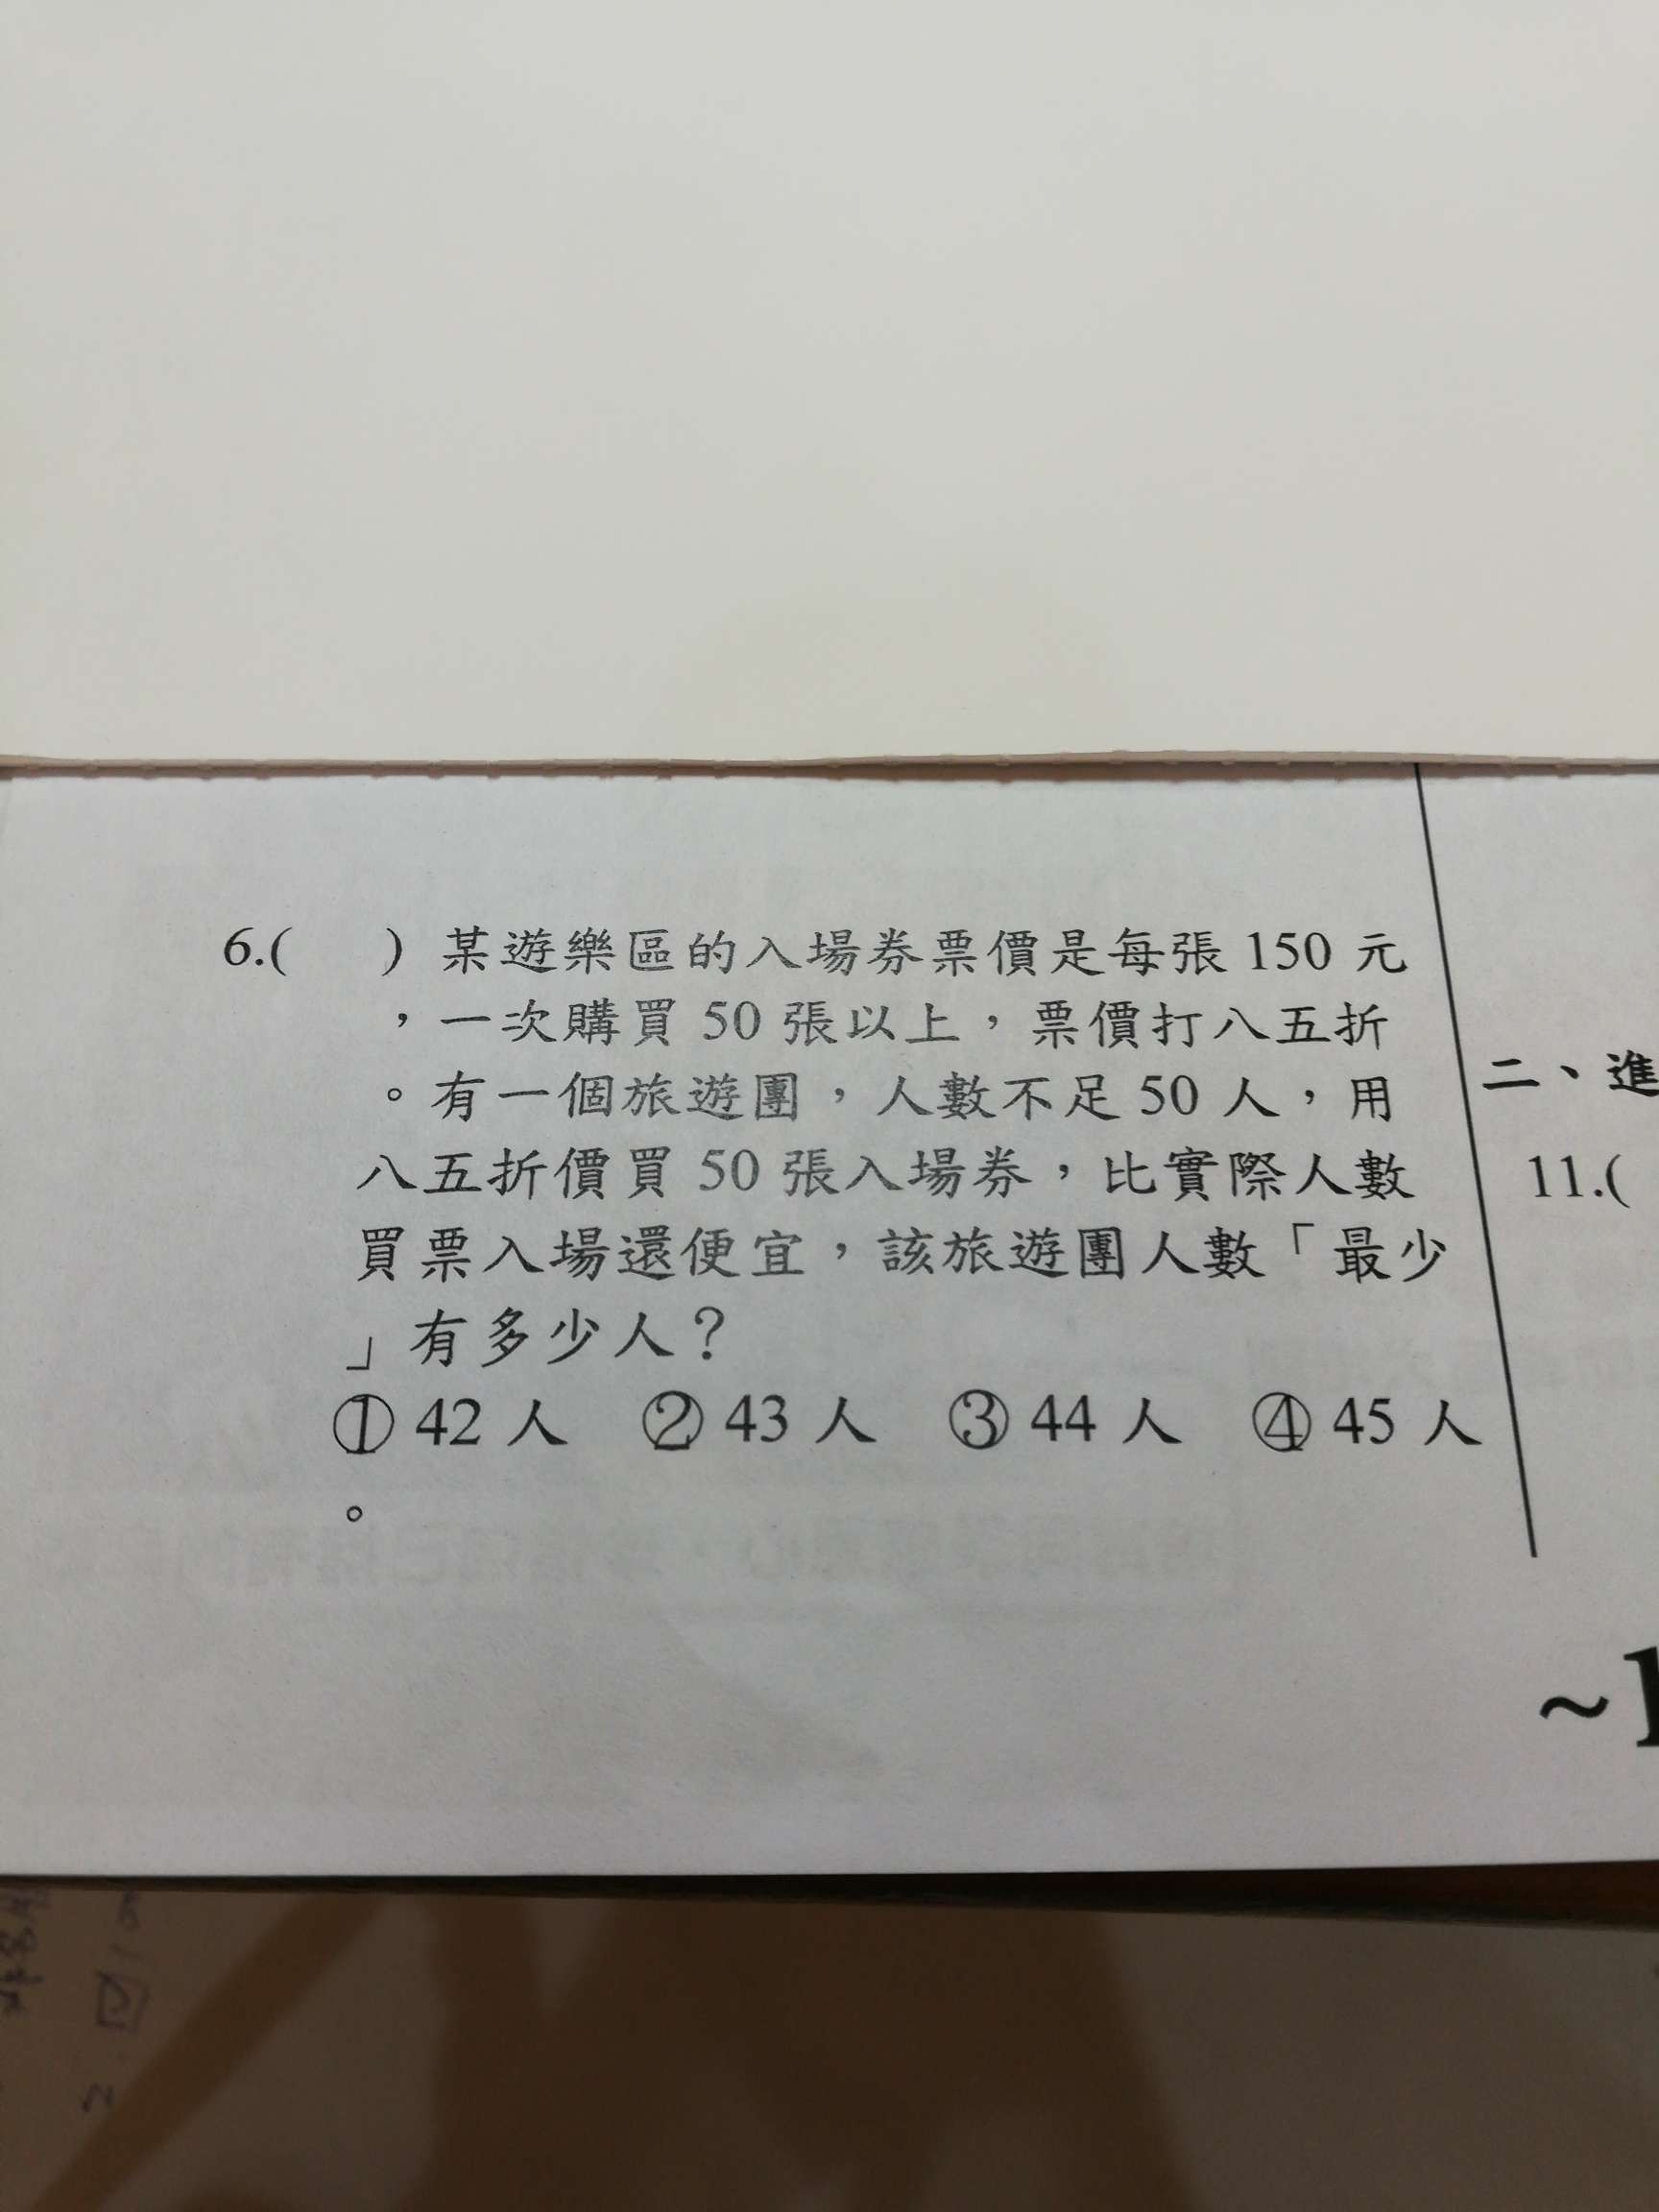 6.(　　) 某遊樂區的入場券票價是每張 150 元
，一次購買 50 張以上，票價打八五折
。有一個旅遊團，人數不足 50 人，用
八五折價買 50 張入場券，比實際人數
買票入場還便宜，該旅遊團人數「最少
」有多少人？
① 42 人　② 43 人　③ 44 人　④ 45 人
。
二、進
11.(
~1